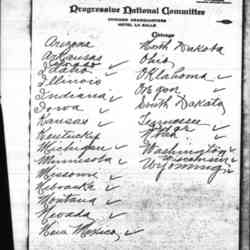 Progressive National Committee
CHICAGO HEADQUARTERS
HOTEL LA SALLE
Chicago
Arizona
Arkansas
Colorado
Idaho
Illinois
Indiana
Iowa
Kansas
Kentucky
Michigan
Minnesota
Missouri
Nebraska
Montana
Nevada
New Mexico
North Dakota
Ohio
Oklahoma
Oregon
South Dakota
Tennessee
Utah
Washington
Wisconsin
Wyoming